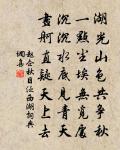 湖光山色共爭秋
一點塵埃無覓處
沉沉水底見青天
畫舸直疑天上去
趙企秋日泛西湖詞典
調喜